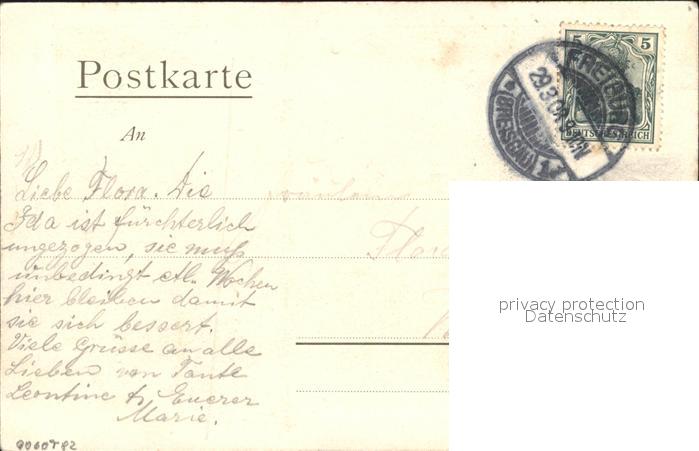 Postkarte
An
5 5
DEUTSCHES REICH
FREIBURG
29.3.
(BREISGAU)
Liebe Flora. Die
Ida ist fürchterlich
ungezogen, sie muß
unbedingt etl. Wochen
hier bleiben damit
sie sich bessert.
Viele Grüsse an alle
Lieben von Tante
Leontine u. Eurer
Marie.
Fräulein
Flora
privacy protection
Datenschutz